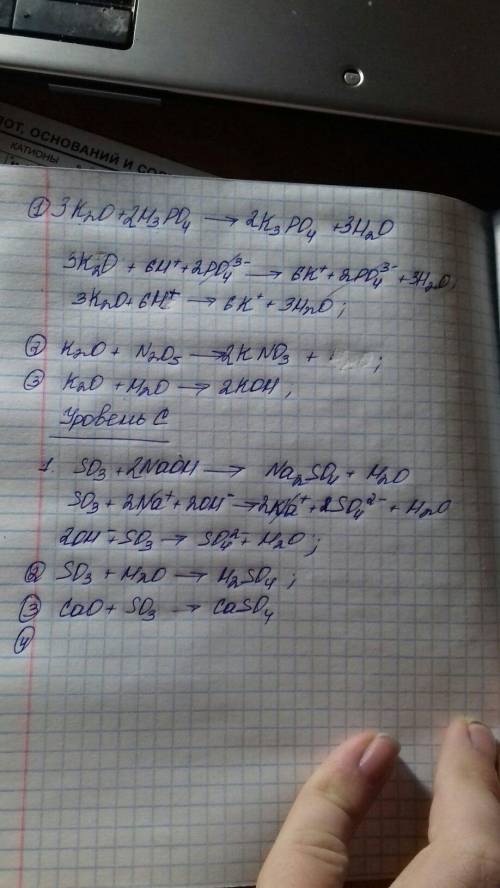 ЛОТ, ОСНОВАНИЙ И СОЛ
КАТИОНЫ
① 3K₂O + 2H₃PO₄ → 2K₃PO₄ + 3H₂O
3K₂O + 6H⁺ + 2PO₄³⁻ → 6K⁺ + 2PO₄³⁻ + 3H₂O;
3K₂O + 6H⁺ → 6K⁺ + 3H₂O;
② K₂O + N₂O₅ → 2KNO₃ + ;
③ K₂O + H₂O → 2KOH;
Уровень С
1. SO₃ + 2NaOH → Na₂SO₄ + H₂O
SO₃ + 2Na⁺ + 2OH⁻ → 2Na⁺ + SO₄²⁻ + H₂O
2OH⁻ + SO₃ → SO₄²⁻ + H₂O;
② SO₃ + H₂O → H₂SO₄;
③ CaO + SO₃ → CaSO₄
④